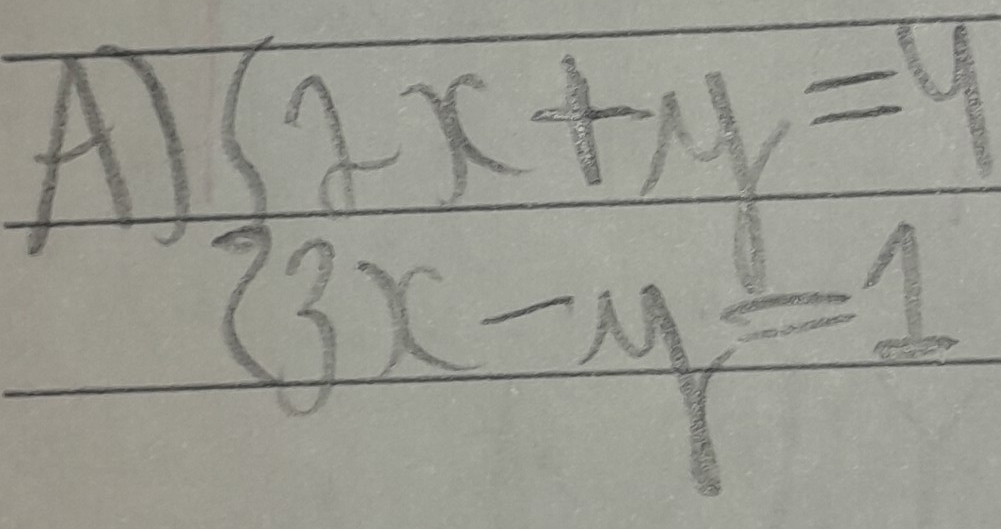 A) { 2x + y = 4
{ 3x - y = 1